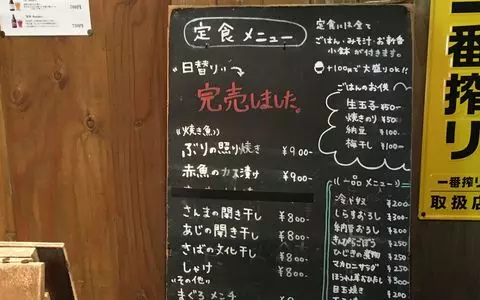 700円
750円
定食メニュー
定食には全て
ごはん・みそ汁・お新香
小鉢が付きます。
+100円で大盛りOK!!
日替り
完売しました。
ごはんのお供
生玉子 ¥50-
焼きのり ¥50
納豆 ¥100-
梅干し ¥100-
焼き魚
ぶりの照り焼き ¥900-
赤魚のカス漬け ¥900-
さんまの開き干し ¥800-
あじの開き干し ¥800-
さばの文化干し ¥800-
しゃけ ¥800-
その他
まぐろメンチ
一品メニュー
冷やっこ ¥200
しらすおろし ¥300
納豆おろし ¥200
きんぴらごぼう ¥300
ひじきの煮物 ¥300
マカロニサラダ ¥300
ほうれん草おひたし ¥300
目玉焼き ¥200
一番搾り
一番搾り
取扱店